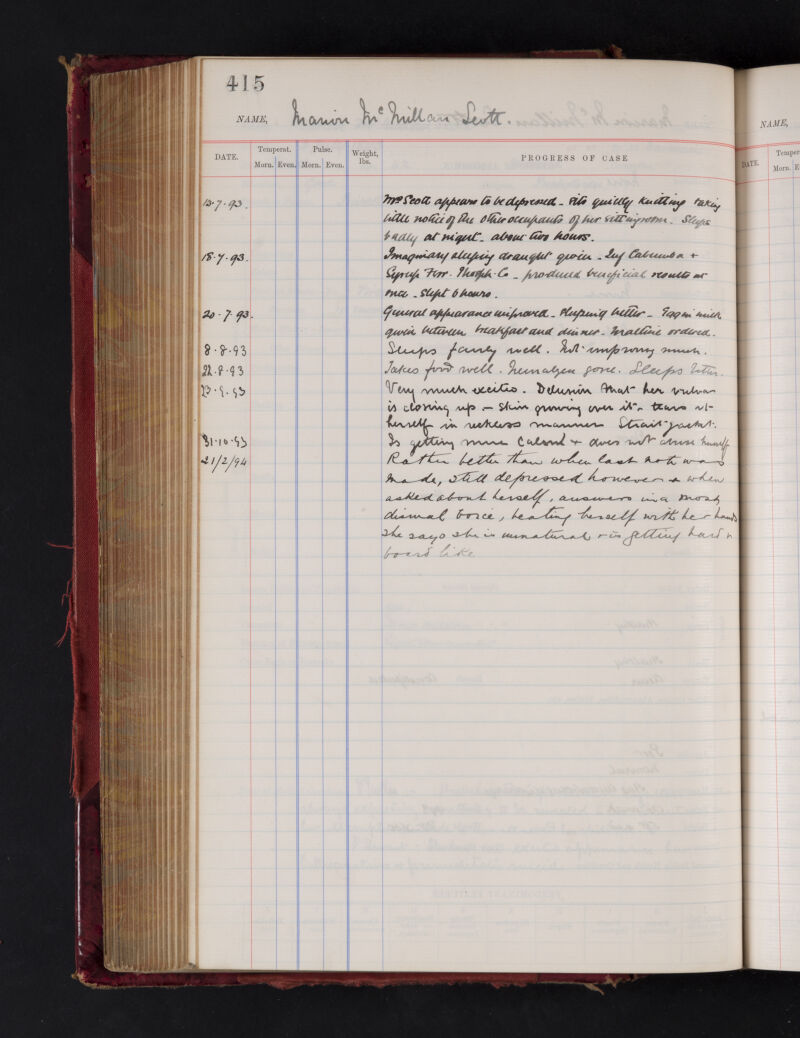 415
NAME, Marion McMillan Scott.
NAME,
DATE. Temperat. Pulse. Weight, lbs. PROGRESS OF CASE
Morn. Even. Morn. Even.
DATE. Temper
Morn. E
13.7.93. Mrs Scott appears to be depressed - sits quietly knitting taking
little notice of the other occupants of her sitting room. Sleeps
badly at night - about two hours.
18.7.93. Imaginary sleeping draught given - Inf Calumba +
Syrup Ferr. Phosph. Co - produced beneficial results at
once - slept 6 hours.
20.7.93. General appearance improved - sleeping better - Egg in milk
given between breakfast and dinner - Maltine ordered.
8.8.93 Sleeps fairly well. Not improving much.
22.8.93 Takes food well. Neuralgia gone. Sleeps better.
23.9.93 Very much excited. Delusion that her vulva
is closing up - skin growing over it - tears at
herself in reckless manner Strait-jacket.
31.10.93 Is getting more calm + does not abuse herself
21/2/94 Rather better than when last note was
made, still depressed however & when
asked about herself, answers in a most
dismal voice, beating herself with her hands
she says she is unnatural & is getting hard &
board like